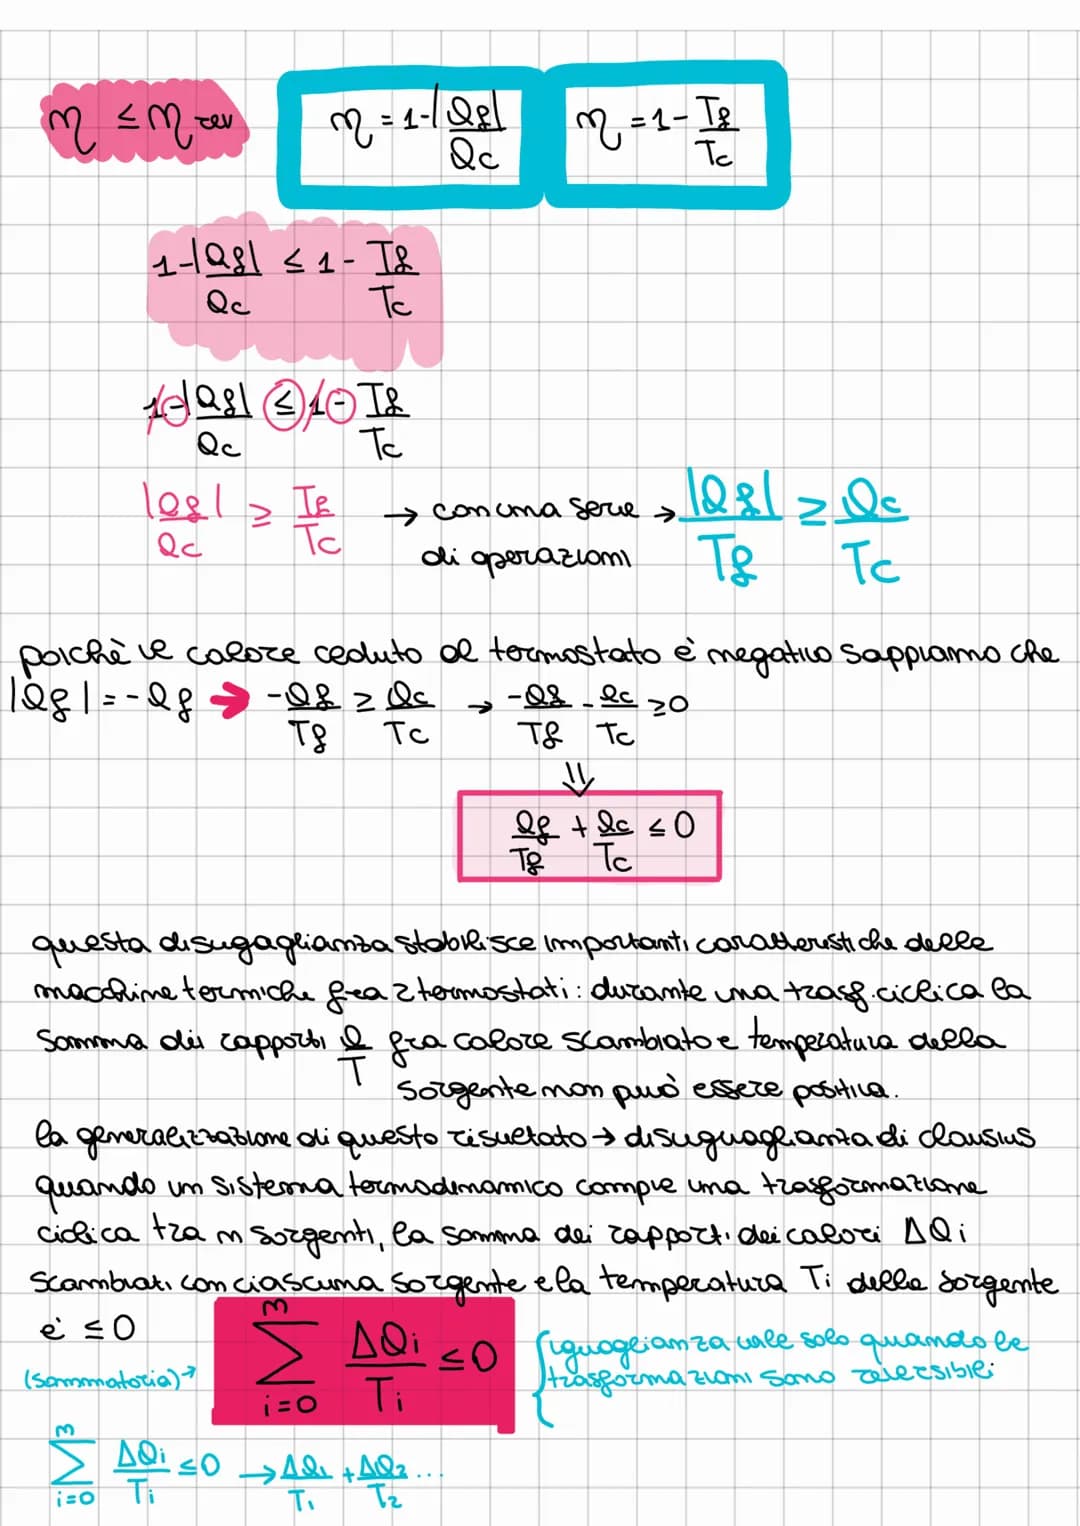 η ≤ η rev   η = 1 - |Qf| / Qc   η = 1 - Tf / Tc
1 - |Qf| / Qc ≤ 1 - Tf / Tc
1 - |Qf| / Qc ≤ 1 - Tf / Tc
|Qf| / Qc ≥ Tf / Tc → con una serie → |Qf| / Tf ≥ Qc / Tc
di operazioni
poichè il calore ceduto al termostato è negativo sappiamo che
|Qf| = - Qf → -Qf / Tf ≥ Qc / Tc → -Qf / Tf - Qc / Tc ≥ 0
⇓
Qf / Tf + Qc / Tc ≤ 0
questa disugaglianza stabilisce importanti caratteristiche delle
macchine termiche fra 2 termostati: durante una trasf. ciclica la
somma dei rapporti Q / T fra calore scambiato e temperatura della
sorgente non può essere positiva.
la generalizzazione di questo risultato → disuguaglianza di Clausius
quando un sistema termodinamico compie una trasformazione
ciclica tra n sorgenti, la somma dei rapporti dei calori ΔQi
scambiati con ciascuna sorgente e la temperatura Ti delle sorgente
è ≤ 0
(sommatoria) → n ∑ i=0 ΔQi / Ti ≤ 0 { l'guaglianza vale solo quando le
trasformazioni sono reversibili
n ∑ i=0 ΔQi / Ti ≤ 0 → ΔQ1 / T1 + ΔQ2 / T2 ...